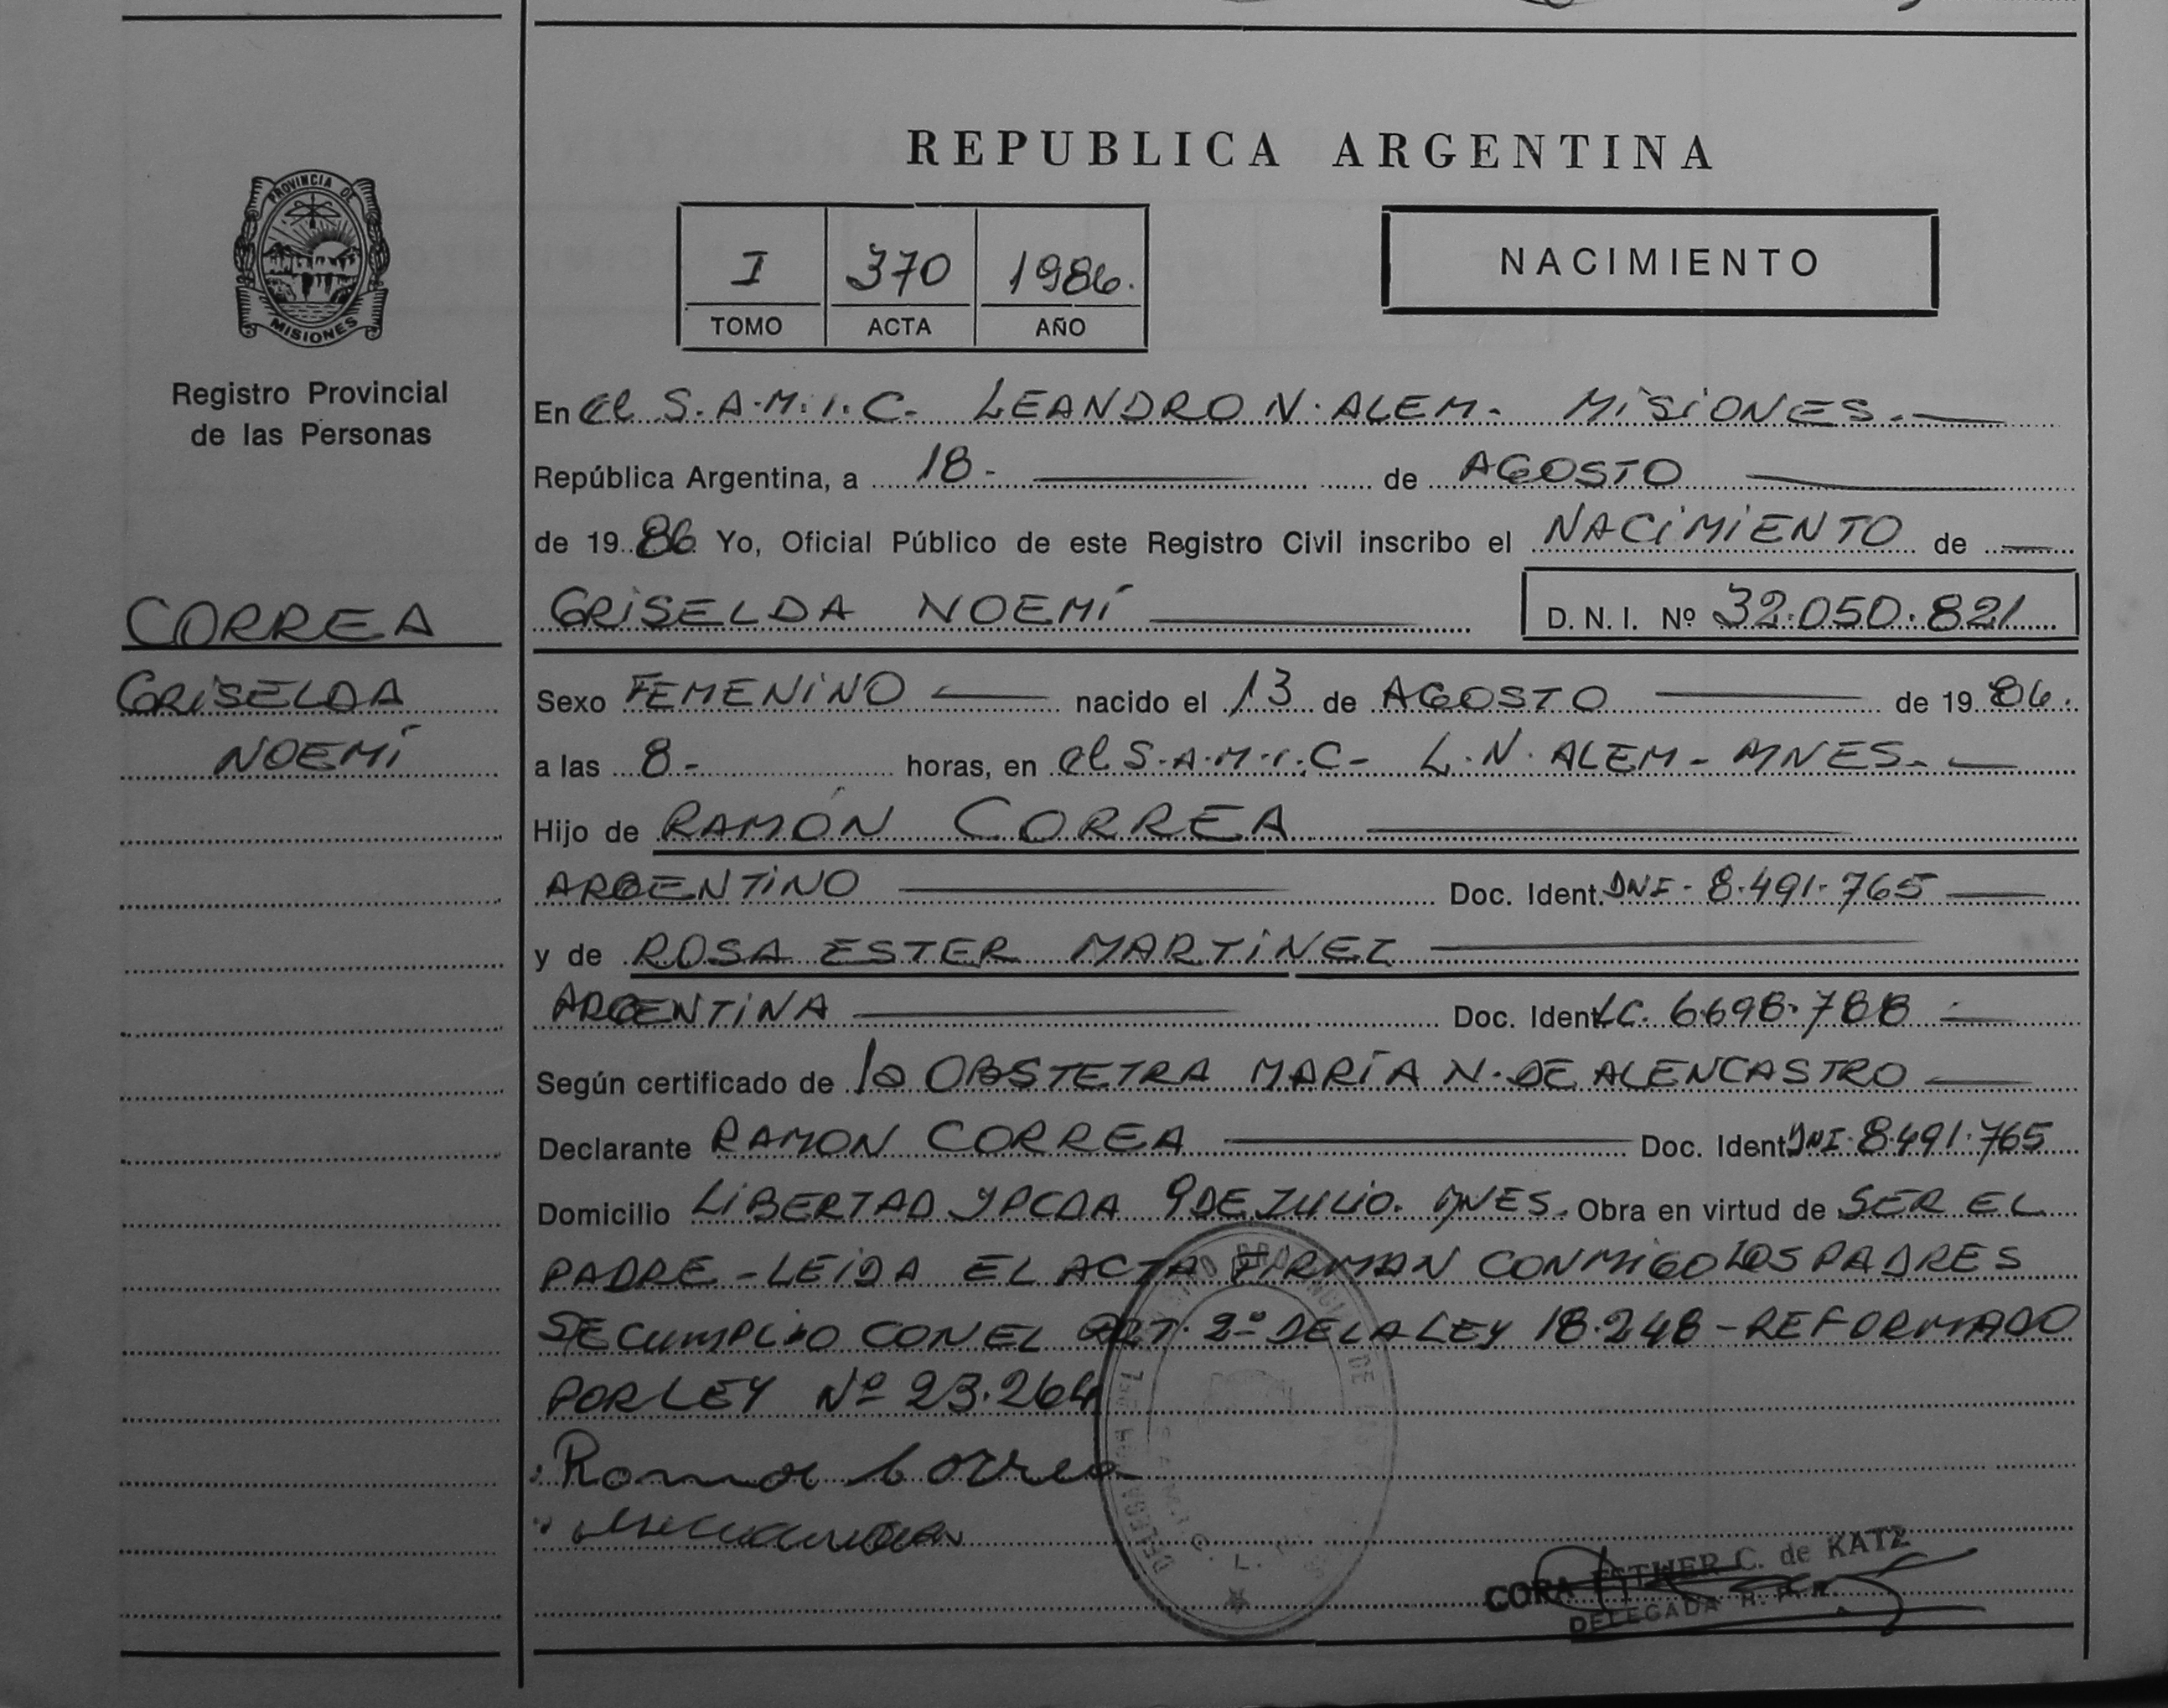 REPUBLICA ARGENTINA
PROVINCIA DE
MISIONES
Registro Provincial
de las Personas
I 370 1986.
TOMO ACTA AÑO
NACIMIENTO
En el S.A.M.I.C. LEANDRO N. ALEM- MISIONES.-
República Argentina, a 18- de AGOSTO
de 19 86 Yo, Oficial Público de este Registro Civil inscribo el NACIMIENTO de
CORREA
GRISELDA
NOEMÍ
GRISELDA NOEMÍ D. N. I. Nº 32.050.821
Sexo FEMENINO nacido el 13 de AGOSTO de 19 86.
a las 8- horas, en el S.A.M.I.C- L.N. ALEM- MNES.-
Hijo de RAMÓN CORREA
ARGENTINO Doc. Ident. DNI- 8.491.765
y de ROSA ESTER MARTINEZ
ARGENTINA Doc. Ident LC. 6698.788
Según certificado de la OBSTETRA MARÍA N. DE ALENCASTRO
Declarante RAMON CORREA Doc. Ident DNI. 8.491.765
Domicilio LIBERTAD Y PCDA 9 DE JULIO. MNES. Obra en virtud de SER EL
PADRE - LEIDA EL ACTA FIRMAN CONMIGO LOS PADRES
SE CUMPLIO CON EL ART. 2º DE LA LEY 18.248 - REFORMADO
POR LEY Nº 23.264
Correa
CORA ESTHER C. de KATZ
DELEGADA R. P.